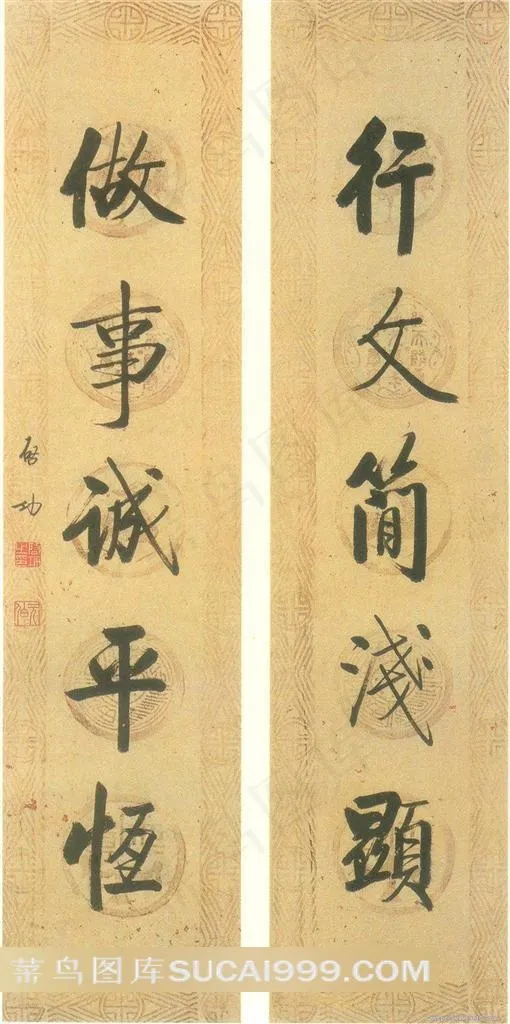 行文簡淺顯
做事诚平恆
啓功
菜鸟图库SUCAI999.COM